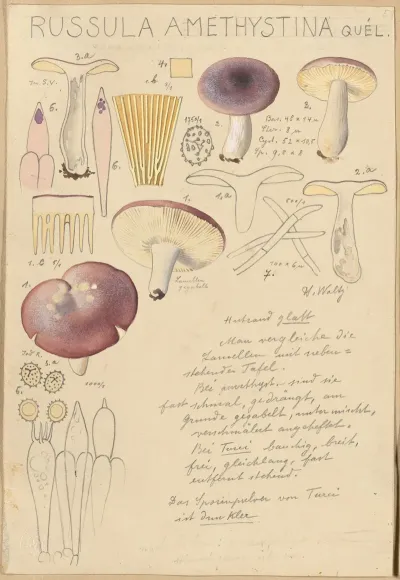 RUSSULA AMETHYSTINA QUÉL.
3.a
4.
b
5/1
5.
2.
3.
Bas. 48 x 14 µ
Cyst. 52 x 12,5
Sp. 9,5 x 8
6.
1.a
2.a
1.
Lamellen
gegabelt
7.
H. Waltz
1.
Hutrand glatt
Man vergleiche die
Lamellen mit neben=
stehender Tafel.
Bei amethyst. sind sie
fast schmal, gedrängt, am
Grunde gegabelt, untermischt,
verschmälert angeheftet.
Bei Turci bauchig, breit,
frei, gleichlang, fast
entfernt stehend.
Das Sporenpulver von Turci
ist dunkler